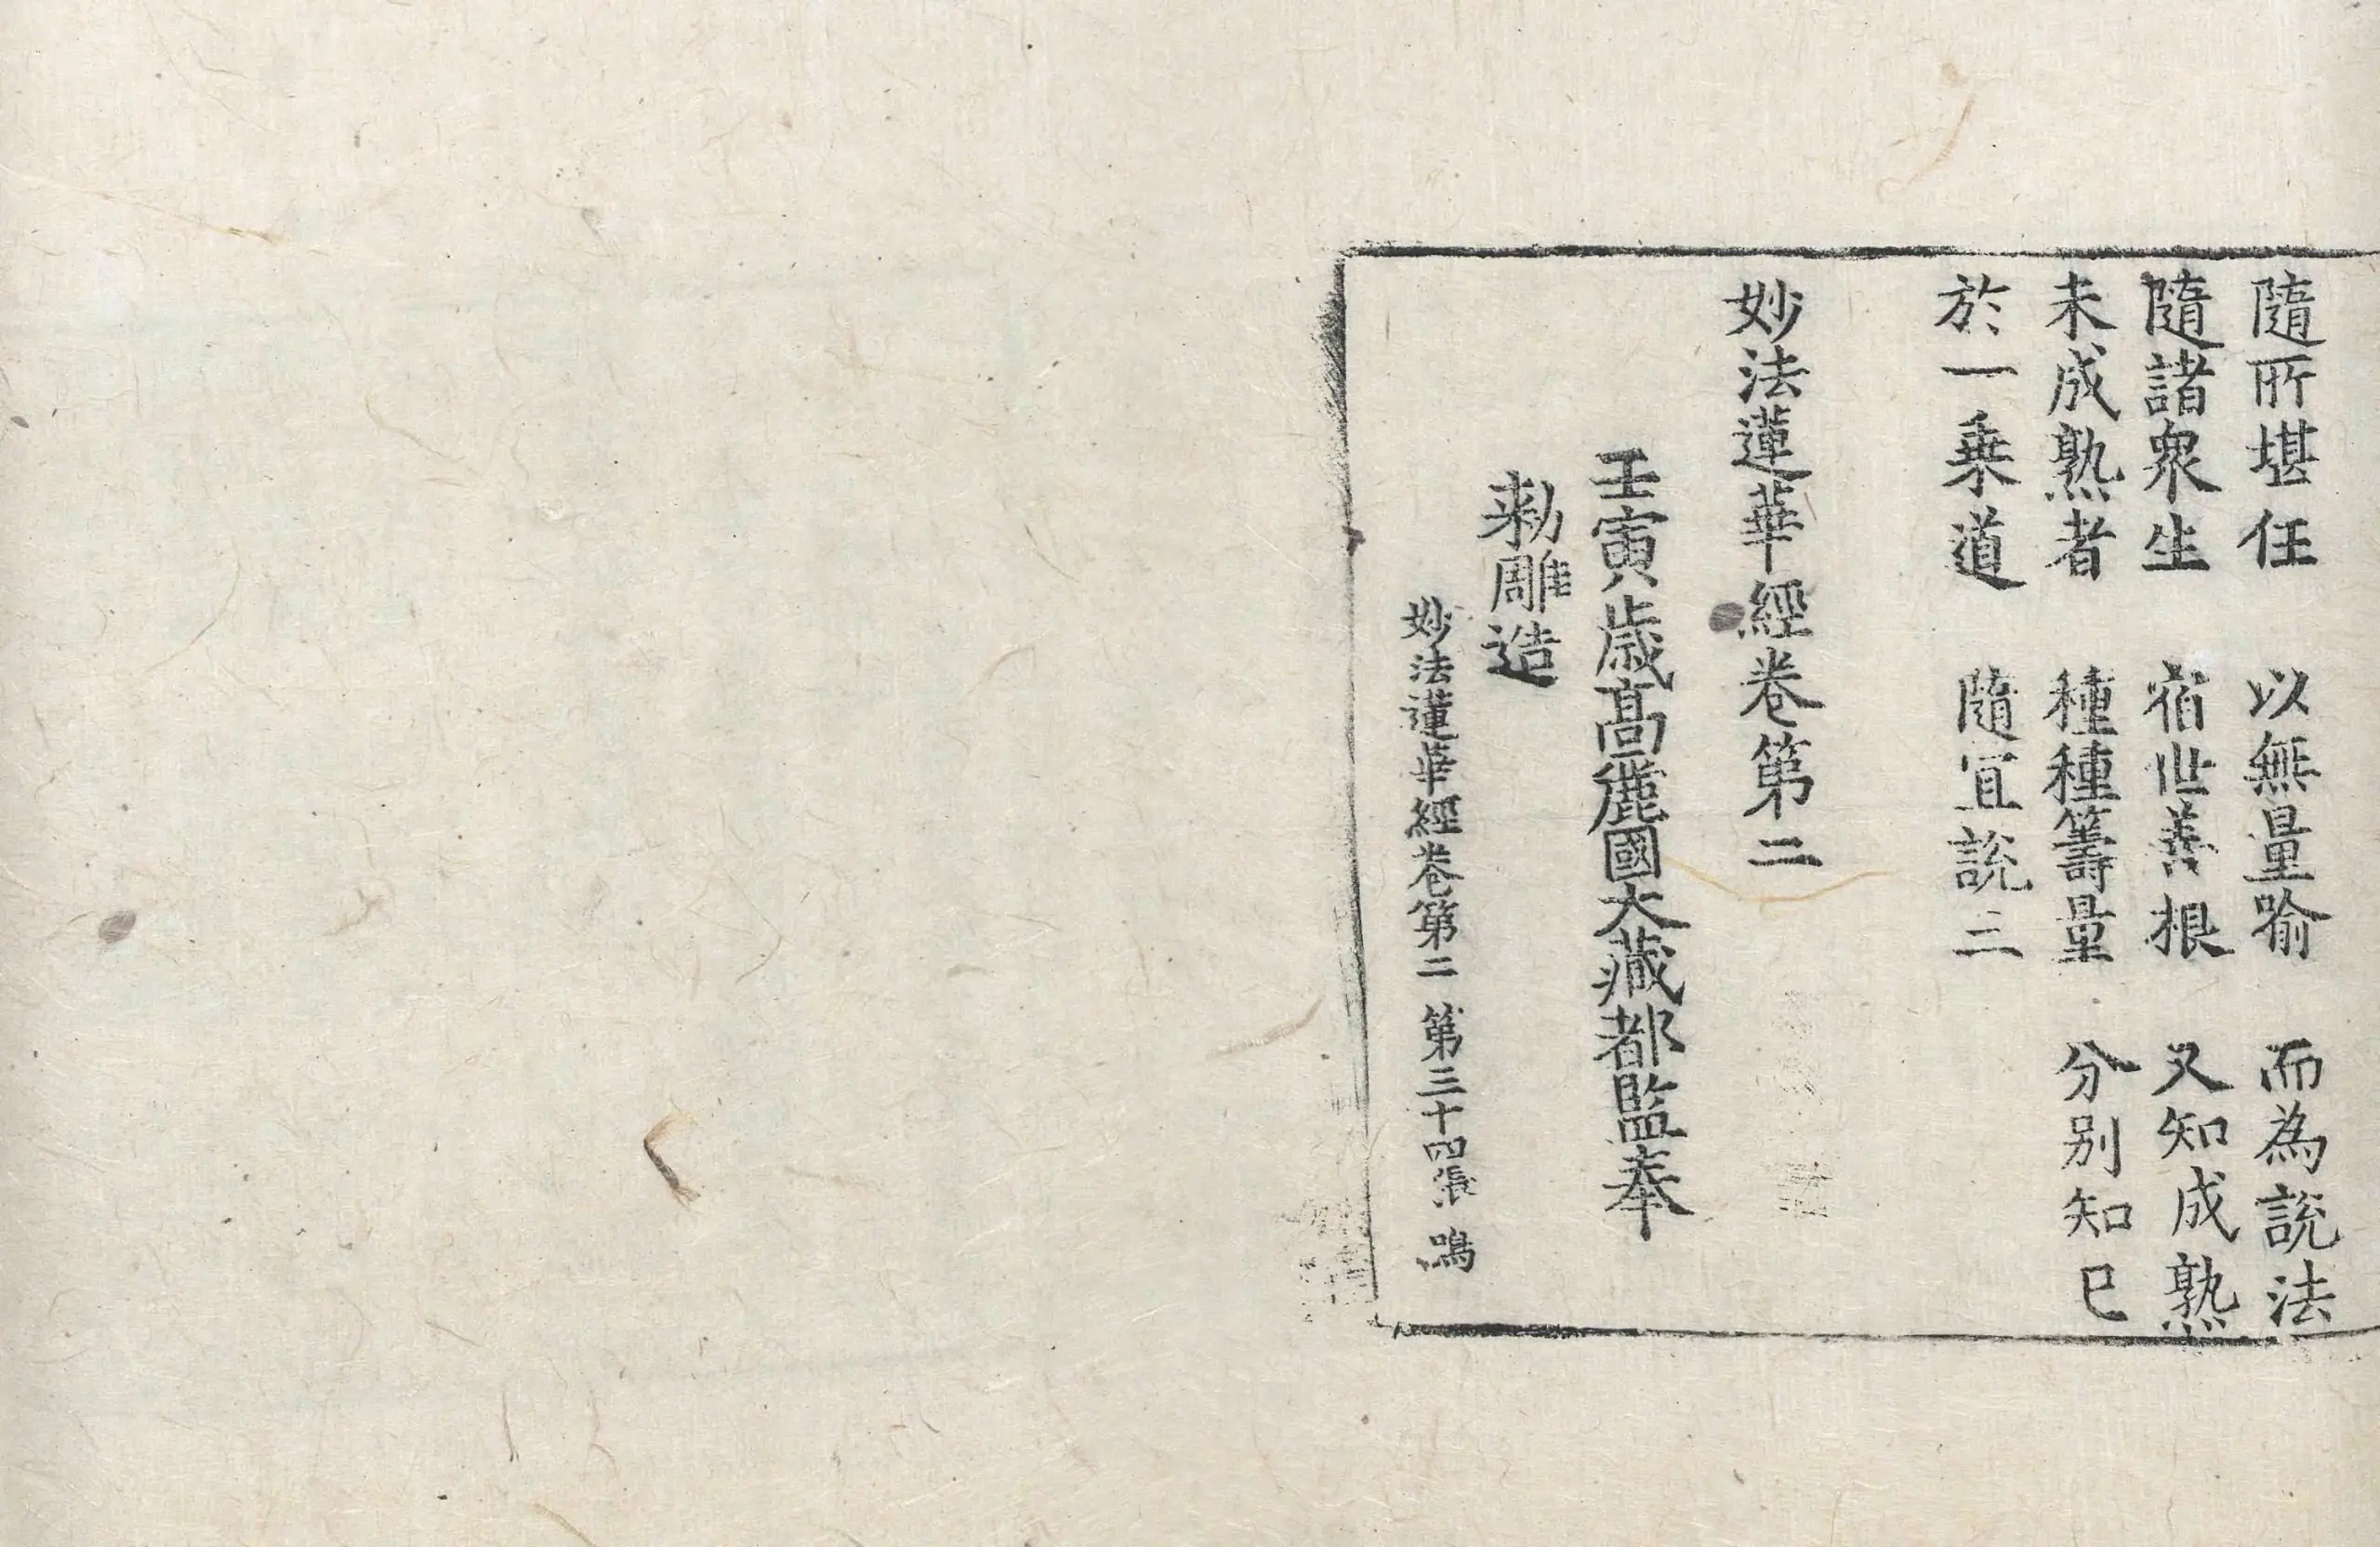 隨所堪任　以無量喻　而為說法
隨諸衆生　宿世善根　又知成熟
未成熟者　種種籌量　分別知已
於一乗道　隨宜說三
妙法蓮華經卷第二
壬寅歳髙麗國大藏都監奉
勑雕造
妙法蓮華經卷第二　第三十四張　鳴